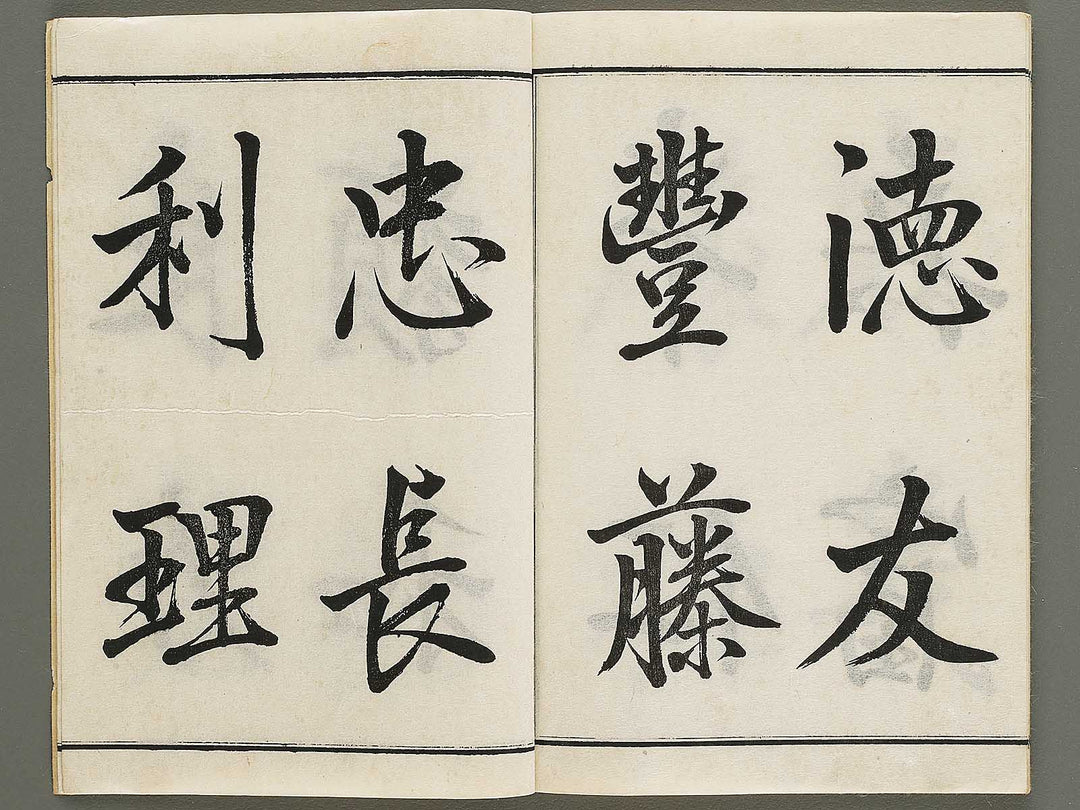 徳友
豐藤
忠長
利理